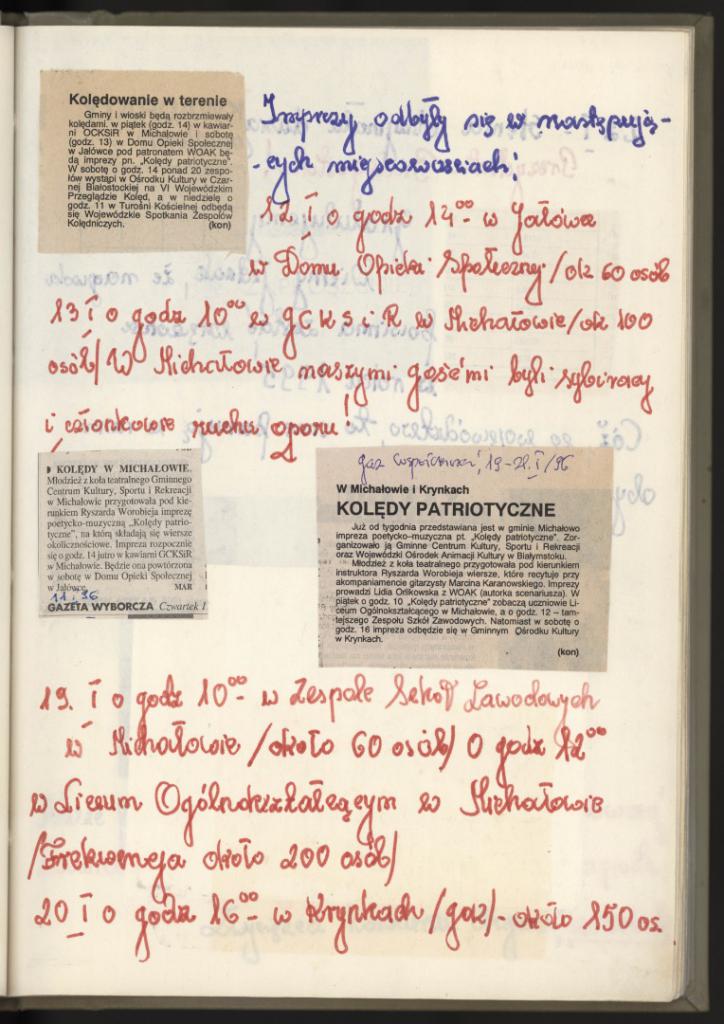 Kolędowanie w terenie
Gminy i wioski będą rozbrzmiewały
kolędami. w piątek (godz. 14) w kawiar-
ni OCKSiR w Michałowie i sobotę
(godz. 13) w Domu Opieki Społecznej
w Jałówce pod patronatem WOAK bę-
dą imprezy pn. „Kolędy patriotyczne".
W sobotę o godz. 14 ponad 20 zespo-
łów wystąpi w Ośrodku Kultury w Czar-
nej Białostockiej na VI Wojewódzkim
Przeglądzie Kolęd, a w niedzielę o
godz. 11 w Turośni Kościelnej odbędą
się Wojewódzkie Spotkania Zespołów
Kolędniczych. (kon)
Imprezy odbyły się w następują-
-cych miejscowościach!
12 I o godz 14⁰⁰ w Jałówce
w Domu Opieki Społecznej /ok 60 osób
13 I o godz 10⁰⁰ w GCKSiR w Michałowie /ok 100
osób/ W Michałowie naszymi gośćmi byli sybiracy
i członkowie ruchu oporu!
KOLĘDY W MICHAŁOWIE.
Młodzież z koła teatralnego Gminnego
Centrum Kultury, Sportu i Rekreacji
w Michałowie przygotowała pod kie-
runkiem Ryszarda Worobieja imprezę
poetycko-muzyczną „Kolędy patrio-
tyczne", na którą składają się wiersze
okolicznościowe. Impreza rozpocznie
się o godz. 14 jutro w kawiarni GCKSiR
w Michałowie. Będzie ona powtórzona
w sobotę w Domu Opieki Społecznej
w Jałówce. MAR
11 I 96
GAZETA WYBORCZA Czwartek 1
gaz Współczesna, 19-21.I/96
W Michałowie i Krynkach
KOLĘDY PATRIOTYCZNE
Już od tygodnia przedstawiana jest w gminie Michałowo
impreza poetycko–muzyczna pt. „Kolędy patriotyczne". Zor-
ganizowało ją Gminne Centrum Kultury, Sportu i Rekreacji
oraz Wojewódzki Ośrodek Animacji Kultury w Białymstoku.
Młodzież z koła teatralnego przygotowała pod kierunkiem
instruktora Ryszarda Worobieja wiersze, które recytuje przy
akompaniamencie gitarzysty Marcina Karanowskiego. Imprezę
prowadzi Lidia Orlikowska z WOAK (autorka scenariusza). W
piątek o godz. 10 „Kolędy patriotyczne" zobaczą uczniowie Li-
ceum Ogólnokształcącego w Michałowie, a o godz. 12 – tam-
tejszego Zespołu Szkół Zawodowych. Natomiast w sobotę o
godz. 16 impreza odbędzie się w Gminnym Ośrodku Kultury
w Krynkach.
(kon)
19. I o godz 10⁰⁰ w Zespole Szkół Zawodowych
w Michałowie /około 60 osób/ O godz 12⁰⁰
w Liceum Ogólnokształcącym w Michałowie
/Frekwencja około 200 osób/
20 I o godz 16⁰⁰ w Krynkach /gok/ - około 150 os.